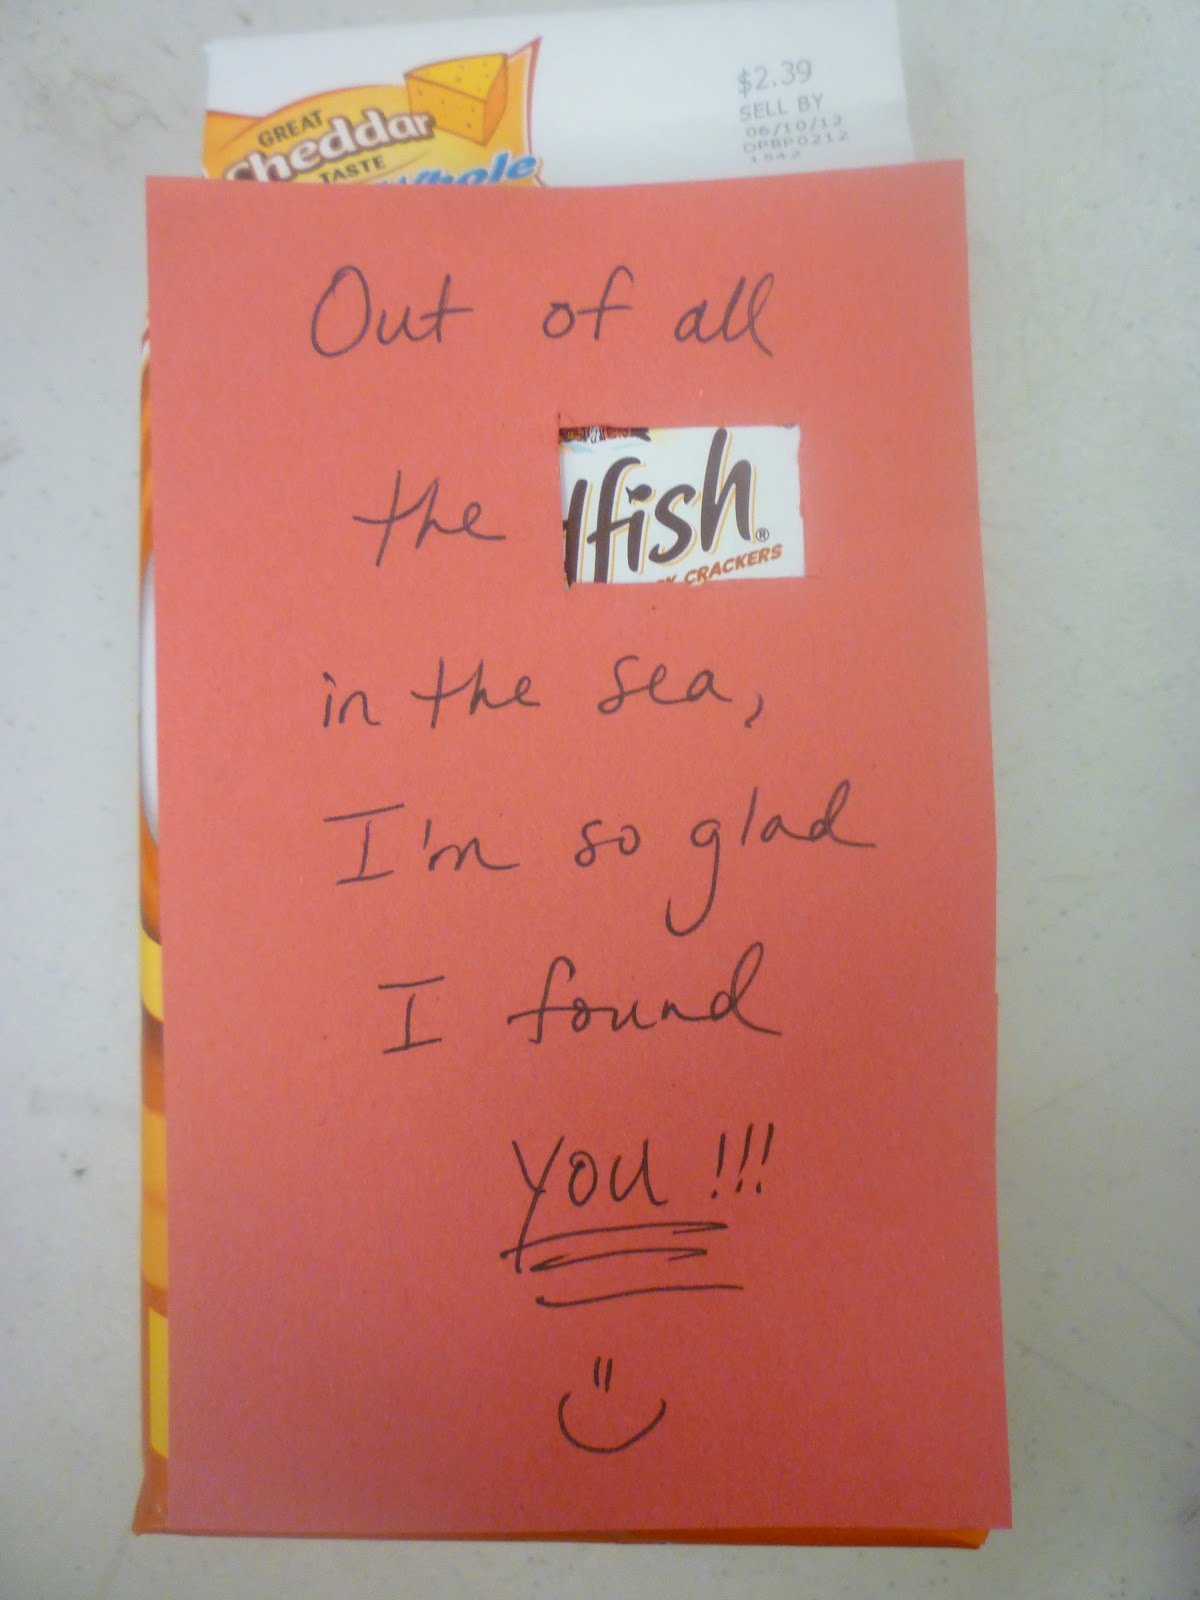 GREAT
Cheddar
TASTE
Whole
$2.39
SELL BY
06/10/12
DPBP0212
1542
Out of all
the fish®
CRACKERS
in the sea,
I'm so glad
I found
you!!!